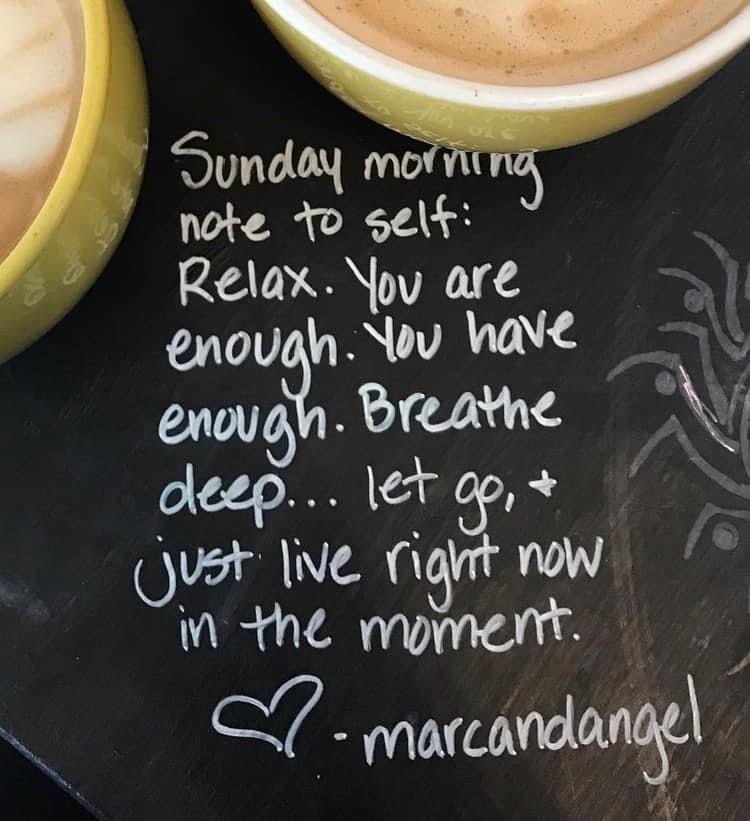 Sunday morning
note to self:
Relax. You are
enough. You have
enough. Breathe
deep... let go, +
just live right now
in the moment.
- marcandangel